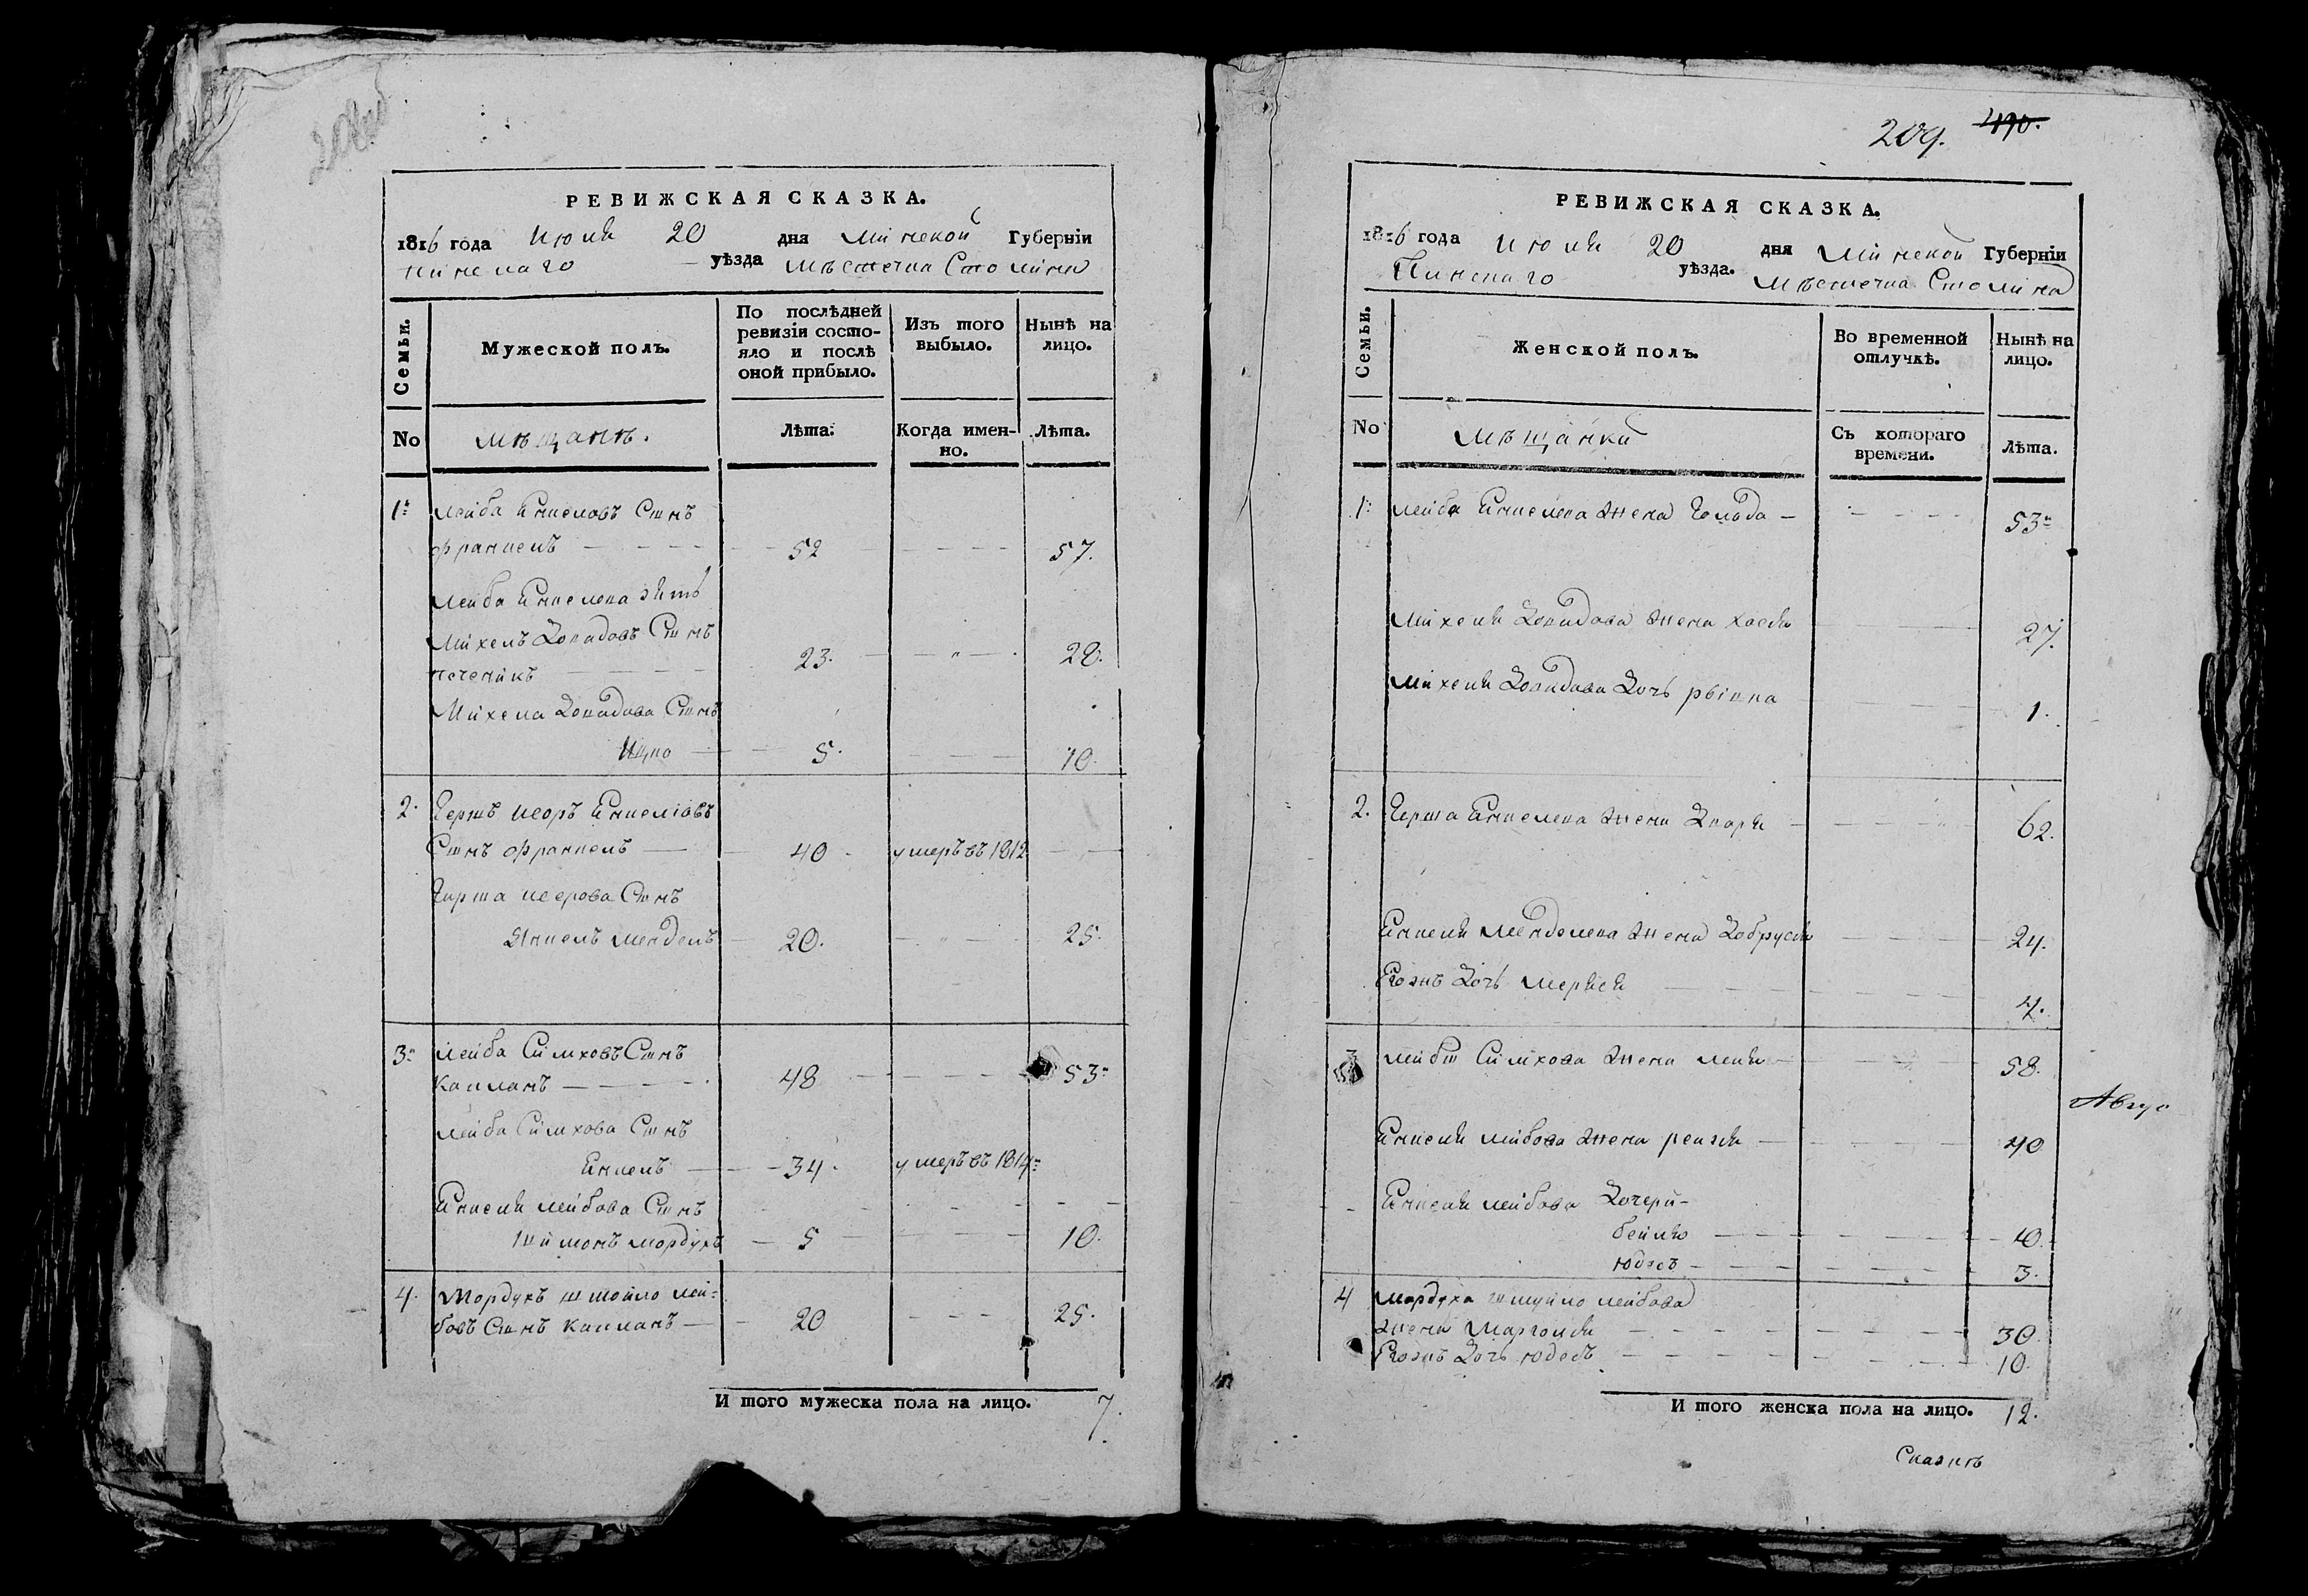 РЕВИЖСКАЯ СКАЗКА.
1816 года Июля 20 дня Минской Губерніи
Пинскаго уѣзда Мѣстечка Столина
Семьи.
Мужеской полъ.
По послѣдней ревизіи состо-
яло и послѣ оной прибыло.
Изъ того выбыло.
Нынѣ на лицо.
No
Мѣщанъ.
Лѣта.
Когда имен-
но.
Лѣта.
1. Лейба Янкеловъ Сынъ
Франкель 52 57.
Лейба Янкелева зять
Михель Давидовъ Сынъ
печеникъ 23. 28.
Михеля Давидова Сынъ
Ицко 5. 10.
2. Гершъ Исеръ Янкеліовъ
Сынъ Франкель 40 умеръ въ 1812
Гирша Исерова Сынъ
Янкель Мендель 20. 25.
3. Лейба Симховъ Сынъ
Капланъ 48 53
Лейба Симхова Сынъ
Янкель 34. умеръ въ 1814
Янкеля Лейбова Сынъ
Шимонъ Мордухъ 5 10.
4. Мордухъ Шмойло Лей-
бовъ Сынъ Капланъ 20 25.
И того мужеска пола на лицо. 7.
209. 490.
РЕВИЖСКАЯ СКАЗКА.
1816 года Июля 20 дня Минской Губерніи
Пинскаго уѣзда. Мѣстечка Столина
Семьи.
Женской полъ.
Во временной отлучкѣ.
Нынѣ на лицо.
No
Мѣщанки
Съ котораго времени.
Лѣта.
1. Лейба Янкелева жена Голода 53
Михеля Давидова жена Хася 27.
Михеля Давидова Дочь Рывка 1.
2. Герша Янкелева жена Дваря 62.
Янкеля Менделева жена Добруся 24.
Егожъ Дочь Меряся 4.
3 Лейбы Симхова жена Лея 58.
Авгус
Янкеля Лейбова жена Рейзя 40
Янкеля Лейбова Дочери-
Бейля 10.
Юдесъ 3.
4 Мордуха Шмуйло Лейбова
жена Марголя 30.
Егожъ Дочь Юдесъ 10.
И того женска пола на лицо. 12.
Сказкѣ